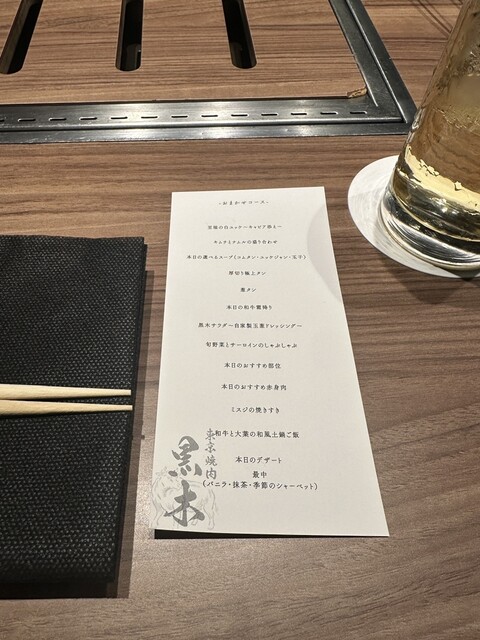 -おまかせコース-
至極の白ユッケ〜キャビア添え〜
キムチとナムルの盛り合わせ
本日の選べるスープ(コムタン・ユッケジャン・玉子)
厚切り極上タン
葱タン
本日の和牛霜降り
黒木サラダ〜自家製玉葱ドレッシング〜
旬野菜とサーロインのしゃぶしゃぶ
本日のおすすめ部位
本日のおすすめ赤身肉
ミスジの焼きすき
和牛と大葉の和風土鍋ご飯
本日のデザート
最中
(バニラ・抹茶・季節のシャーベット)
東京焼肉
黒木